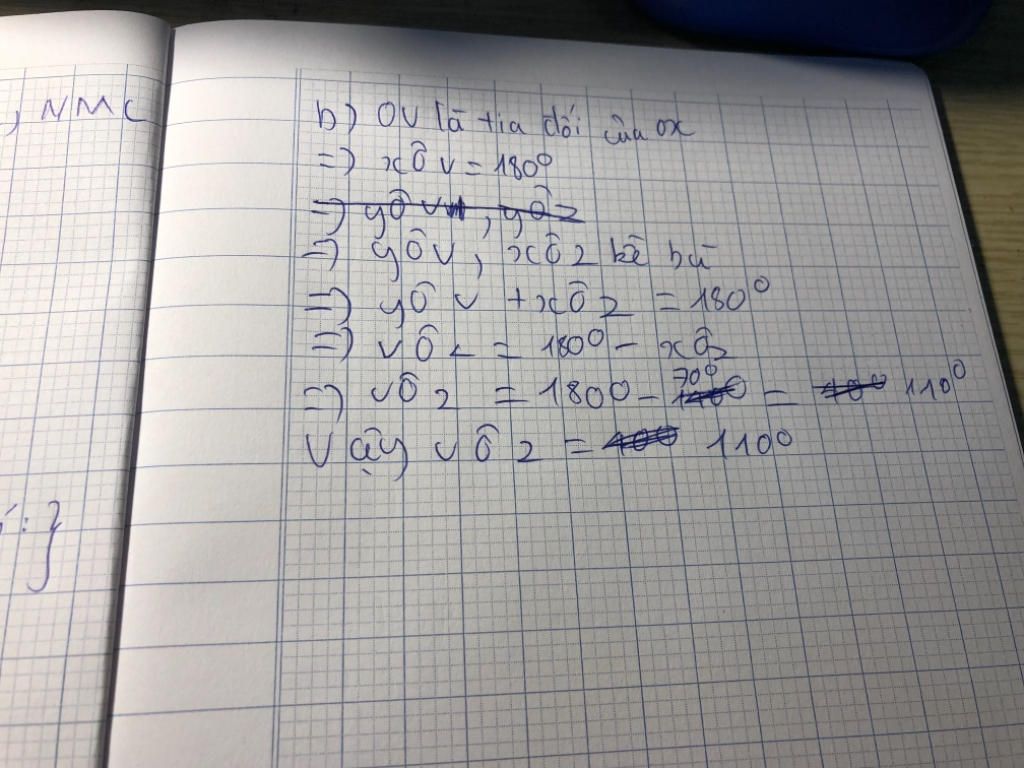 , NMC
b) OV là tia đối của ox
=) xÔv = 180⁰
=) yÔv, xÔz kề bù
=) yÔv + xÔz = 180⁰
=) vÔz = 180⁰ - xÔz
=) vÔz = 180⁰ - 70⁰ = 110⁰
Vậy vÔz = 110⁰